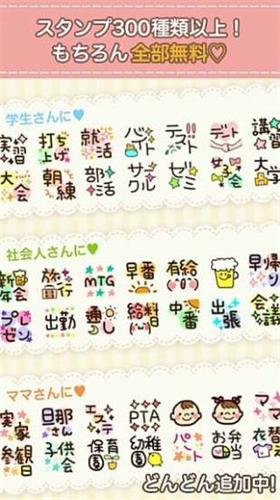 スタンプ300種類以上！
もちろん全部無料♡
学生さんに♥
実習 打ち上げ 就活 バイト テスト デート 講習
大会 朝練 部活 サークル ゼミ 女子会 大学
社会人さんに♥
新年会 旅行 MTG 早番 有給 帰省
プレゼン 出勤 通し 給料日 中番 出張 会議
ママさんに♥
実家 旦那さん エステ PTA
参観日 子供会 保育園 幼稚園 パート お弁当 衣替え
どんどん追加中！